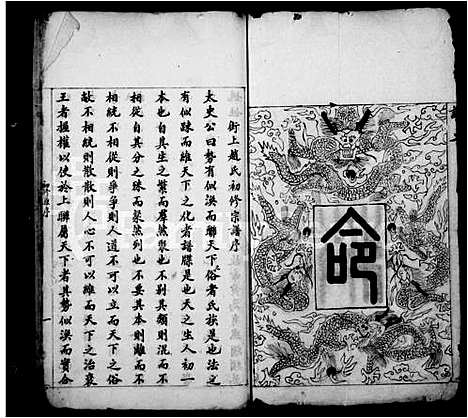 命
街上趙氏初修宗譜序
太史公曰勢有似渙而聯天下俗者氏族是也法之
有似踈而維天下之化者譜牒是也天之生人初一
本也自其生之繁而羣然聚也不别其類則混而不
相從自其分之殊而渙然列也不要其本則離而不
相統不相從則爭爭則人道不可以立而天下之俗
敝不相統則散散則人心不可以維而天下之治衰
王者握權以使於上聯屬天下者其勢似渙而實合
一